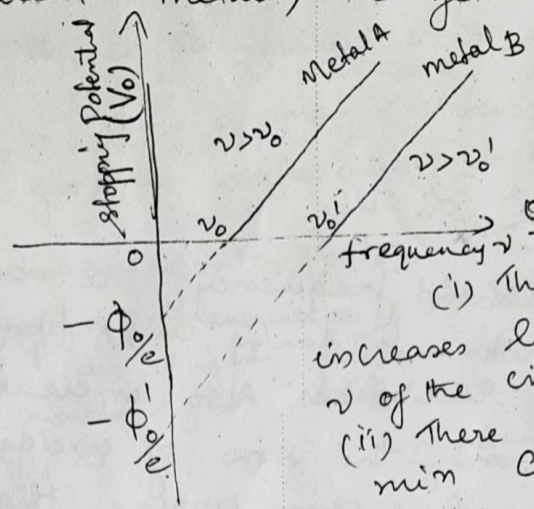 metal,
Stopping Potential
(V₀)
Metal A
metal B
ν>ν₀
ν>ν₀'
ν₀
ν₀'
0
frequency ν
(i) Th
- ϕ₀/e
increases
ν of the
- ϕ₀'/e
(ii) There
min